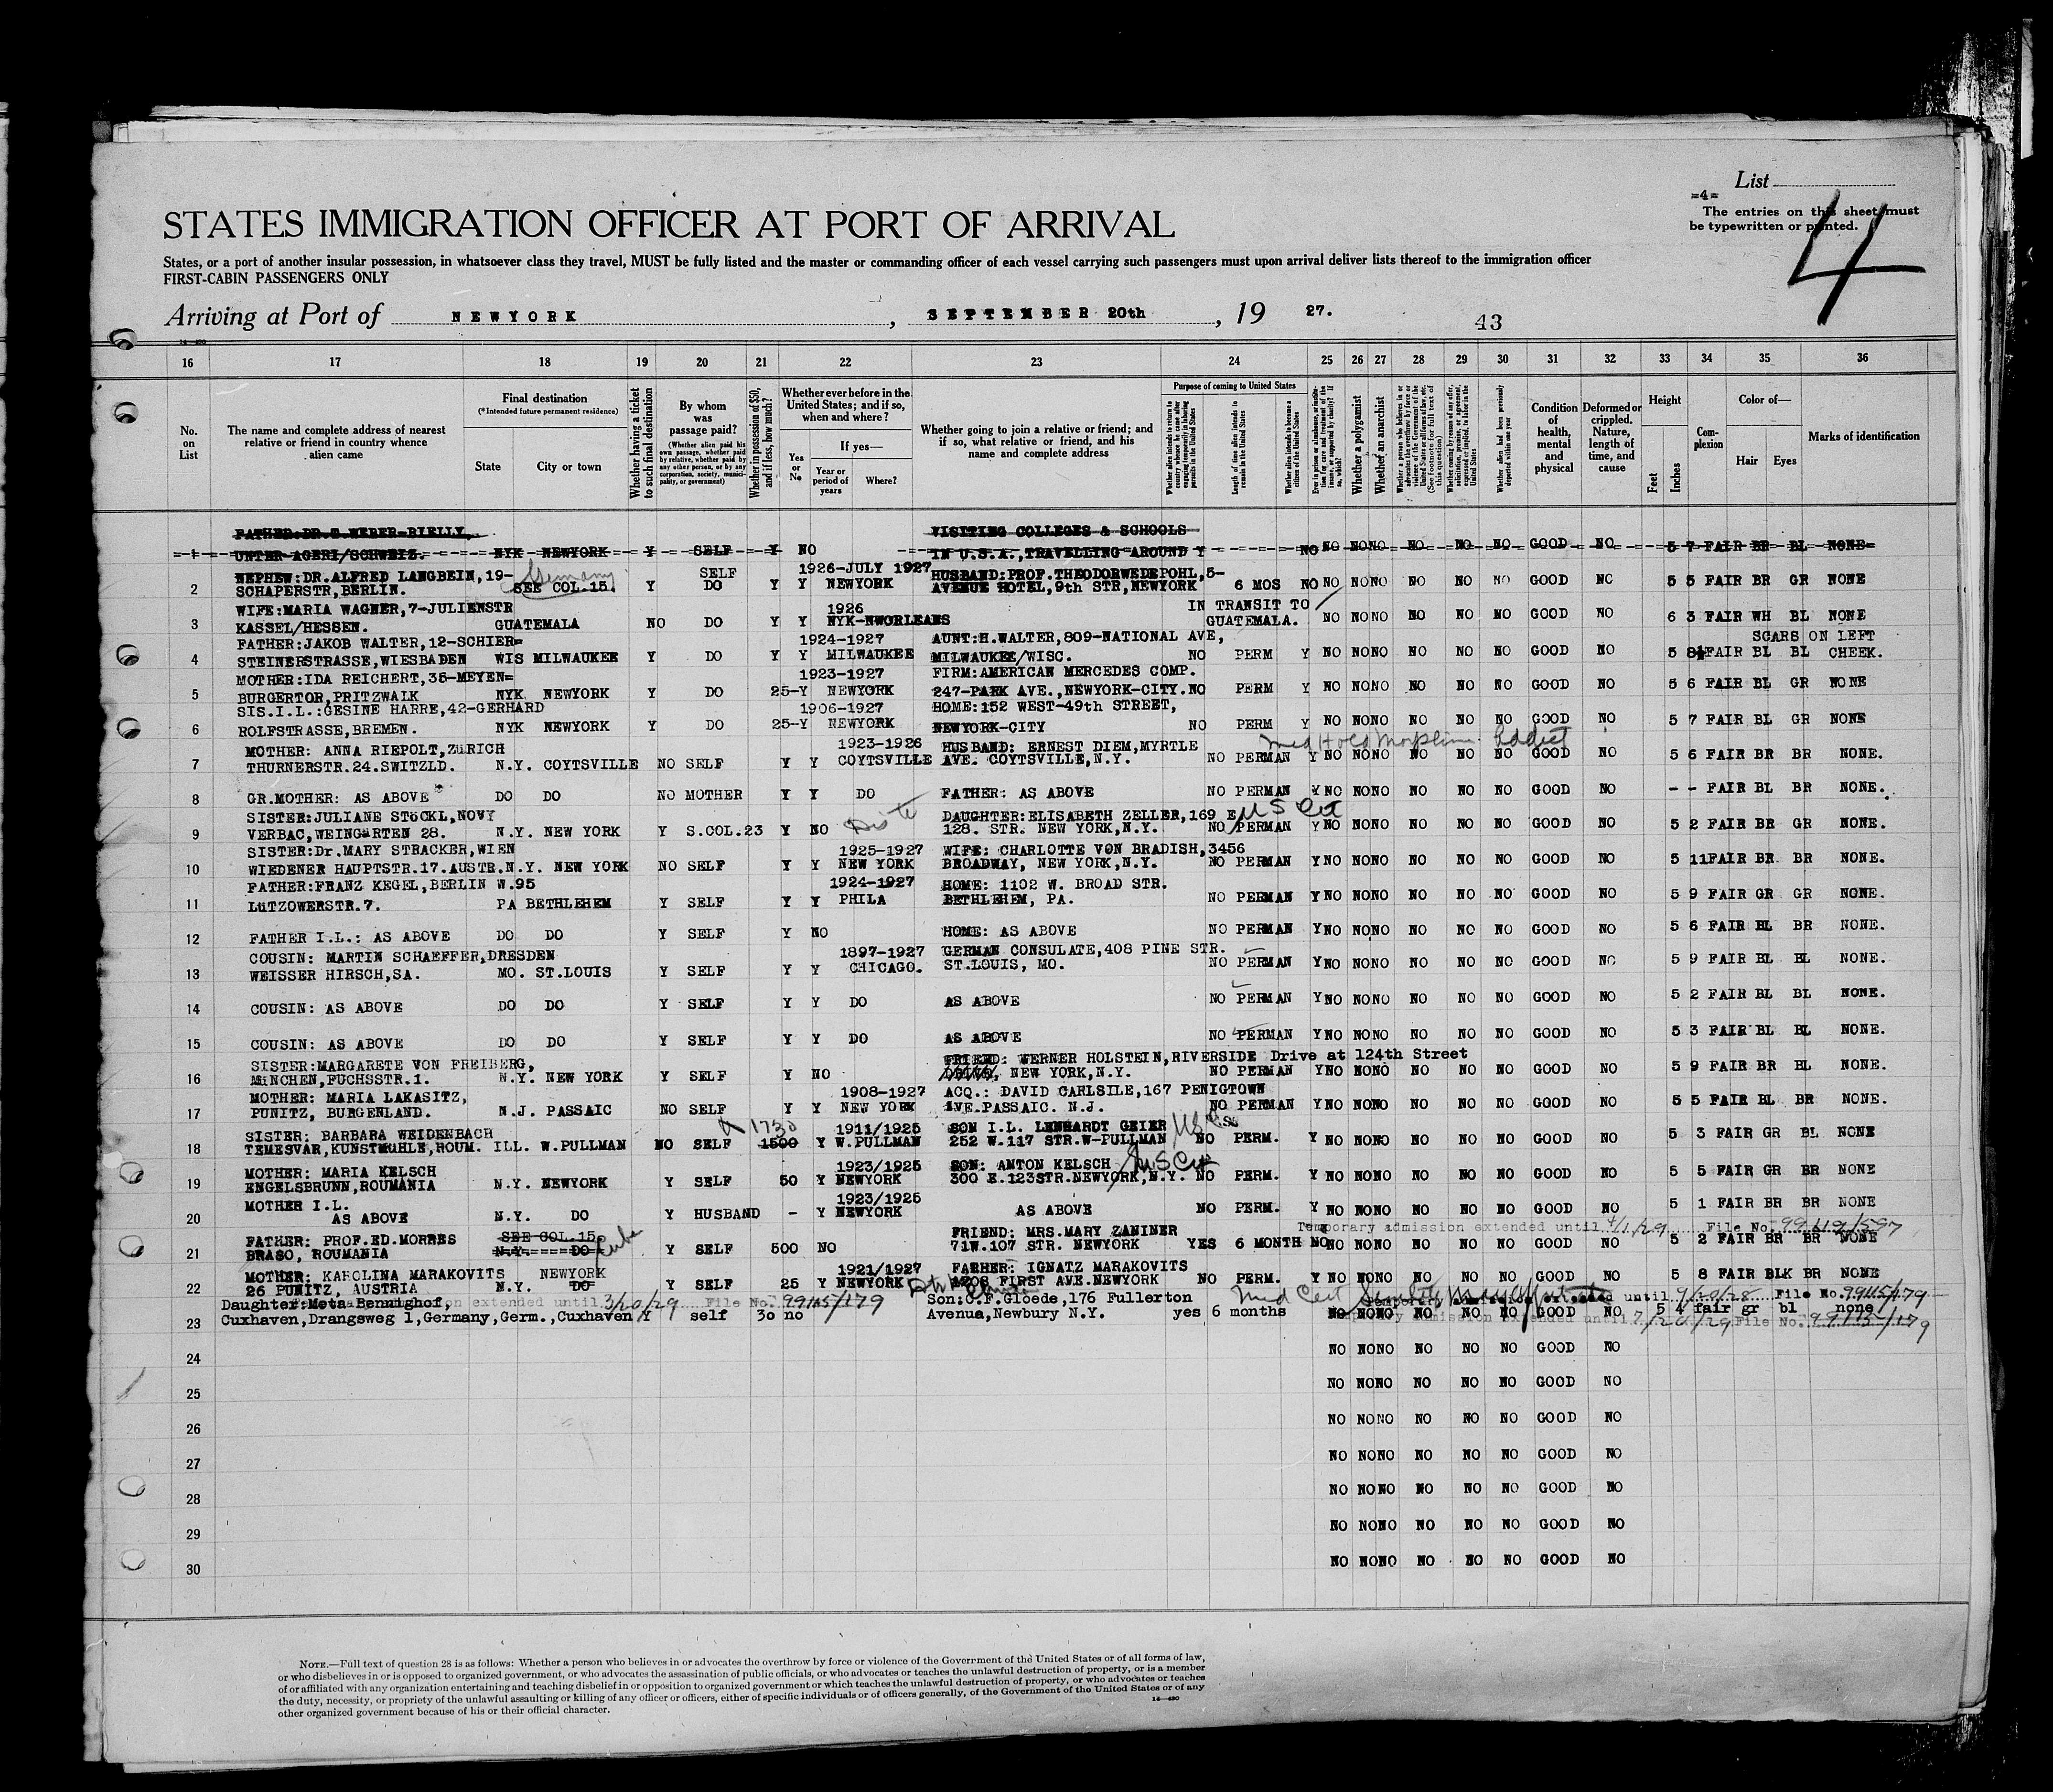 List
=4=
The entries on this sheet must
be typewritten or printed.
4
STATES IMMIGRATION OFFICER AT PORT OF ARRIVAL
States, or a port of another insular possession, in whatsoever class they travel, MUST be fully listed and the master or commanding officer of each vessel carrying such passengers must upon arrival deliver lists thereof to the immigration officer
FIRST-CABIN PASSENGERS ONLY
Arriving at Port of NEWYORK, SEPTEMBER 20th, 19 27.
43
16 17 18 19 20 21 22 23 24 25 26 27 28 29 30 31 32 33 34 35 36
No. on List
The name and complete address of nearest relative or friend in country whence alien came
Final destination
(*Intended future permanent residence)
State
City or town
Whether having a ticket to such final destination
By whom was passage paid?
(Whether alien paid his own passage, whether paid by relative, whether paid by any other person, or by any corporation, society, municipality, or government)
Whether in possession of $50, and if less, how much?
Whether ever before in the United States; and if so, when and where?
Yes or No
If yes—
Year or period of years
Where?
Whether going to join a relative or friend; and if so, what relative or friend, and his name and complete address
Purpose of coming to United States
Whether alien intends to return to country whence he came after engaging temporarily in laboring pursuits in the United States
Length of time alien intends to remain in the United States
Whether alien intends to become a citizen of the United States
Ever in prison or almshouse, or institution for care and treatment of the insane, or supported by charity? If so, which?
Whether a polygamist
Whether an anarchist
Whether a person who believes in or advocates the overthrow by force or violence of the Government of the United States or all forms of law, etc. (See footnote for full text of this question)
Whether coming by reason of any offer, solicitation, promise, or agreement, expressed or implied, to labor in the United States
Whether alien had been previously deported within one year
Condition of health, mental and physical
Deformed or crippled. Nature, length of time, and cause
Height
Feet
Inches
Complexion
Color of—
Hair
Eyes
Marks of identification
FATHER:DR. WEBER-BIELLY, VISITING COLLEGES & SCHOOLS
1 UNTER AGERI/SCHWEIZ. NYK NEWYORK Y SELF Y NO IN U.S.A.,TRAVELLING AROUND Y NO NO NO NO NO NO NO GOOD NO 5 7 FAIR BR BL NONE
NEPHEW:DR.ALFRED LANGBEIN,19- Germany SELF 1926-JULY 1927 HUSBAND:PROF.THEODORWEDEPOHL,5-
2 SCHAPERSTR,BERLIN. SEE COL.15. Y DO Y Y NEWYORK AVENUE HOTEL,9th STR,NEWYORK 6 MOS NO NO NO NO NO NO NO GOOD NO 5 5 FAIR BR GR NONE
WIFE:MARIA WAGNER,7-JULIENSTR 1926 IN TRANSIT TO
3 KASSEL/HESSEN. GUATEMALA NO DO Y Y NYK-NWORLEANS GUATEMALA. NO NO NO NO NO NO GOOD NO 6 3 FAIR WH BL NONE
FATHER:JAKOB WALTER,12-SCHIER= 1924-1927 AUNT:H.WALTER,809-NATIONAL AVE, SCARS ON LEFT
4 STEINERSTRASSE,WIESBADEN WIS MILWAUKEE Y DO Y Y MILWAUKEE MILWAUKEE/WISC. NO PERM Y NO NO NO NO NO NO GOOD NO 5 8½ FAIR BL BL CHEEK.
MOTHER:IDA REICHERT,35-MEYEN= 1923-1927 FIRM:AMERICAN MERCEDES COMP.
5 BURGERTOR,PRITZWALK NYK NEWYORK Y DO 25-Y NEWYORK 247-PARK AVE.,NEWYORK-CITY. NO PERM Y NO NO NO NO NO NO GOOD NO 5 6 FAIR BL GR NONE
SIS.I.L.:GESINE HARRE,42-GERHARD 1906-1927 HOME:152 WEST-49th STREET,
6 ROLFSTRASSE,BREMEN. NYK NEWYORK Y DO 25-Y NEWYORK NEWYORK-CITY NO PERM Y NO NO NO NO NO NO GOOD NO 5 7 FAIR BL GR NONE
MOTHER: ANNA RIEPOLT,ZüRICH 1923-1926 HUSBAND: ERNEST DIEM,MYRTLE Med Hold Morphine Addict
7 THURNERSTR.24.SWITZLD. N.Y. COYTSVILLE NO SELF Y Y COYTSVILLE AVE. COYTSVILLE,N.Y. NO PERMAN Y NO NO NO NO NO NO GOOD NO 5 6 FAIR BR BR NONE.
8 GR.MOTHER: AS ABOVE DO DO NO MOTHER Y Y DO FATHER: AS ABOVE NO PERMAN Y NO NO NO NO NO NO GOOD NO - - FAIR BL BR NONE.
SISTER:JULIANE STöCKL,NOVY DAUGHTER:ELISABETH ZELLER,169 E US Cit
9 VERBAC,WEINGäRTEN 28. N.Y. NEW YORK Y S.COL.23 Y NO 128. STR. NEW YORK,N.Y. NO PERMAN Y NO NO NO NO NO NO GOOD NO 5 2 FAIR BR GR NONE.
SISTER:Dr.MARY STRACKER,WIEN 1925-1927 WIFE: CHARLOTTE VON BRADISH,3456
10 WIEDENER HAUPTSTR.17.AUSTR. N.Y. NEW YORK NO SELF Y Y NEW YORK BROADWAY, NEW YORK,N.Y. NO PERMAN Y NO NO NO NO NO NO GOOD NO 5 11 FAIR BR BR NONE.
FATHER:FRANZ KEGEL,BERLIN W.95 1924-1927 HOME: 1102 W. BROAD STR.
11 LüTZOWERSTR.7. PA BETHLEHEM Y SELF Y Y PHILA BETHLEHEM, PA. NO PERMAN Y NO NO NO NO NO NO GOOD NO 5 9 FAIR GR GR NONE.
12 FATHER I.L.: AS ABOVE DO DO Y SELF Y NO HOME: AS ABOVE NO PERMAN Y NO NO NO NO NO NO GOOD NO 5 6 FAIR BL BR NONE.
COUSIN: MARTIN SCHAEFFER,DRESDEN 1897-1927 GERMAN CONSULATE,408 PINE STR.
13 WEISSER HIRSCH,SA. MO. ST.LOUIS Y SELF Y Y CHICAGO. ST.LOUIS, MO. NO PERMAN Y NO NO NO NO NO NO GOOD NO 5 9 FAIR BL BL NONE.
14 COUSIN: AS ABOVE DO DO Y SELF Y Y DO AS ABOVE NO PERMAN Y NO NO NO NO NO NO GOOD NO 5 2 FAIR BL BL NONE.
15 COUSIN: AS ABOVE DO DO Y SELF Y Y DO AS ABOVE NO PERMAN Y NO NO NO NO NO NO GOOD NO 5 3 FAIR BL BL NONE.
SISTER:MARGARETE VON FREIBERG, FRIEND: WERNER HOLSTEIN,RIVERSIDE Drive at 124th Street
16 MüNCHEN,FUCHSSTR.1. N.Y. NEW YORK Y SELF Y NO DRIVE, NEW YORK,N.Y. NO PERMAN Y NO NO NO NO NO NO GOOD NO 5 9 FAIR BR BL NONE.
MOTHER: MARIA LAKASITZ, 1908-1927 ACQ.: DAVID CARLSILE,167 PENIGTOWN
17 PUNITZ, BURGENLAND. N.J. PASSAIC NO SELF Y Y NEW YORK AVE.PASSAIC. N.J. NO PERMAN Y NO NO NO NO NO NO GOOD NO 5 5 FAIR BL BR NONE.
SISTER: BARBARA WEIDENBACH 1730 1911/1925 SON I.L. LENHARDT GEIER
18 TEMESVAR,KUNSTMUHLE,ROUM. ILL. W.PULLMAN NO SELF 1500 Y W.PULLMAN 252 W.117 STR.W-PULLMAN NO PERM. Y NO NO NO NO NO NO GOOD NO 5 3 FAIR GR BL NONE
MOTHER: MARIA KELSCH 1923/1925 SON: ANTON KELSCH US Cit
19 ENGELSBRUNN,ROUMANIA N.Y. NEWYORK Y SELF 50 Y NEWYORK 300 E.123STR.NEWYORK,N.Y. NO PERM. Y NO NO NO NO NO NO GOOD NO 5 5 FAIR GR BR NONE
MOTHER I.L. 1923/1925
20 AS ABOVE N.Y. DO Y HUSBAND - Y NEWYORK AS ABOVE NO PERM. Y NO NO NO NO NO NO GOOD NO 5 1 FAIR BR BR NONE
Temporary admission extended until 4/1/29 File No. 99119/597
FATHER: PROF.ED.MORRES SEE COL.15 Cuba FRIEND: MRS.MARY ZANINER
21 BRASO, ROUMANIA N.Y. DO Y SELF 500 NO 71W.107 STR. NEWYORK YES 6 MONTH NO NO NO NO NO NO NO GOOD NO 5 2 FAIR BR BR NONE
MOTHER: KAROLINA MARAKOVITS NEWYORK 1921/1927 FATHER: IGNATZ MARAKOVITS
22 26 PUNITZ, AUSTRIA N.Y. DO Y SELF 25 Y NEWYORK 1208 FIRST AVE.NEWYORK NO PERM. Y NO NO NO NO NO NO GOOD NO 5 8 FAIR BLK BR NONE
Daughter:Meta Bennighof, extended until 3/20/29 File No. 99115/179 Son:C.F.Gloede,176 Fullerton Med Cert Senility Temporary admission extended until 9/20/28 File No. 99115/179
23 Cuxhaven,Drangsweg 1,Germany,Germ.,Cuxhaven Y self 30 no Avenue,Newbury N.Y. yes 6 months NO NO NO NO NO NO GOOD NO 5 4 fair gr bl none
extended until 7/20/29 File No. 99115/179
24 NO NO NO NO NO NO GOOD NO
25 NO NO NO NO NO NO GOOD NO
26 NO NO NO NO NO NO GOOD NO
27 NO NO NO NO NO NO GOOD NO
28 NO NO NO NO NO NO GOOD NO
29 NO NO NO NO NO NO GOOD NO
30 NO NO NO NO NO NO GOOD NO
NOTE.—Full text of question 28 is as follows: Whether a person who believes in or advocates the overthrow by force or violence of the Government of the United States or of all forms of law,
or who disbelieves in or is opposed to organized government, or who advocates the assassination of public officials, or who advocates or teaches the unlawful destruction of property, or is a member
of or affiliated with any organization entertaining and teaching disbelief in or opposition to organized government or which teaches the unlawful destruction of property, or who advocates or teaches
the duty, necessity, or propriety of the unlawful assaulting or killing of any officer or officers, either of specific individuals or of officers generally, of the Government of the United States or of any
other organized government because of his or their official character.
14—430